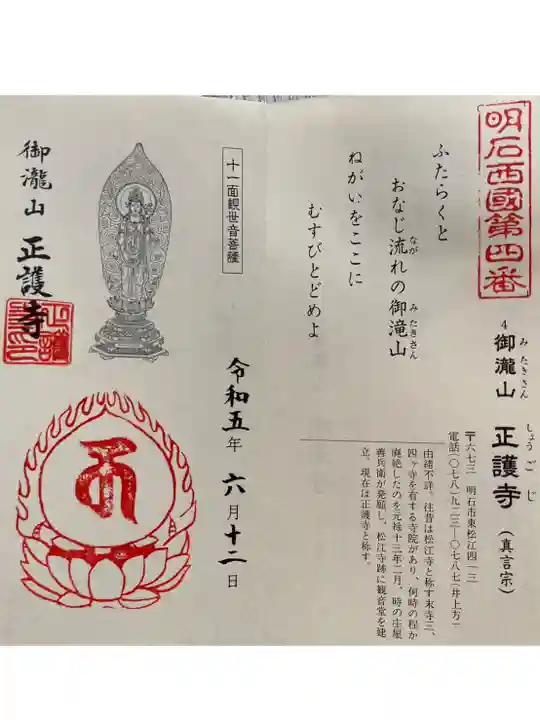 明石西國第四番
4 御瀧山 正護寺(真言宗)
みたきさん
しょうごじ
〒六七三 明石市東松江四一三
電話(〇七八)九二三―〇七八七(井上方)
由緒不詳。往昔は松江寺と称す末寺三、
四ヶ寺を有する寺院があり、何時の程か
廃絶したのを元禄十三年二月、時の庄屋
善兵衛が発願し、松江寺跡に観音堂を建
立、現在は正護寺と称す。
ふたらくと
おなじ流れの御滝山
なが
みたきさん
ねがいをここに
むすびとどめよ
十一面観世音菩薩
令和五年 六月十二日
御瀧山 正護寺